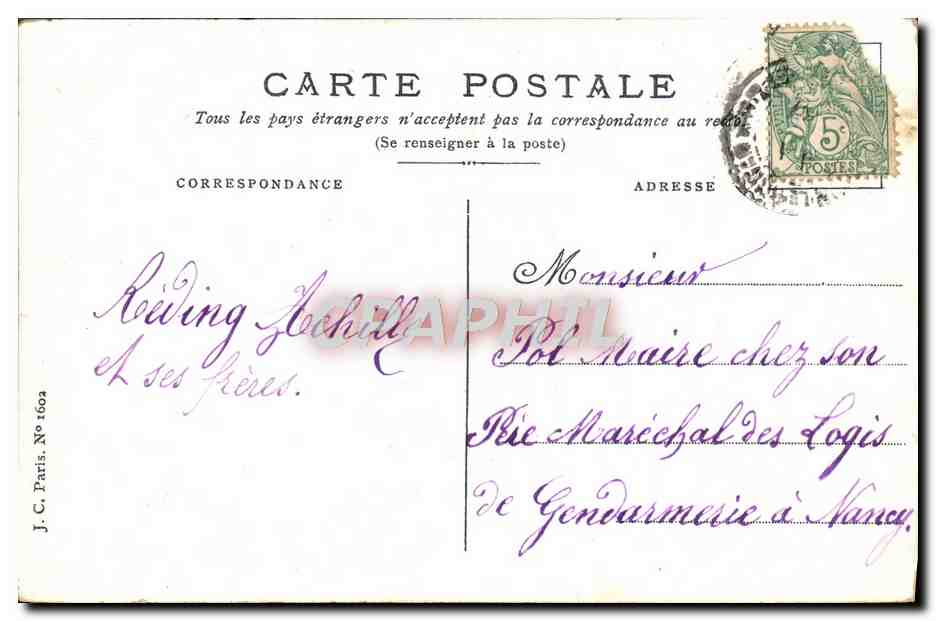 CARTE POSTALE
Tous les pays étrangers n'acceptent pas la correspondance au recto.
(Se renseigner à la poste)
CORRESPONDANCE
ADRESSE
5c
POSTES
Monsieur
Pol Maire chez son
Père Maréchal des Logis
de Gendarmerie à Nancy.
Réding Achille
et ses frères.
CPAPHIL
J. C. Paris. Nº 1602